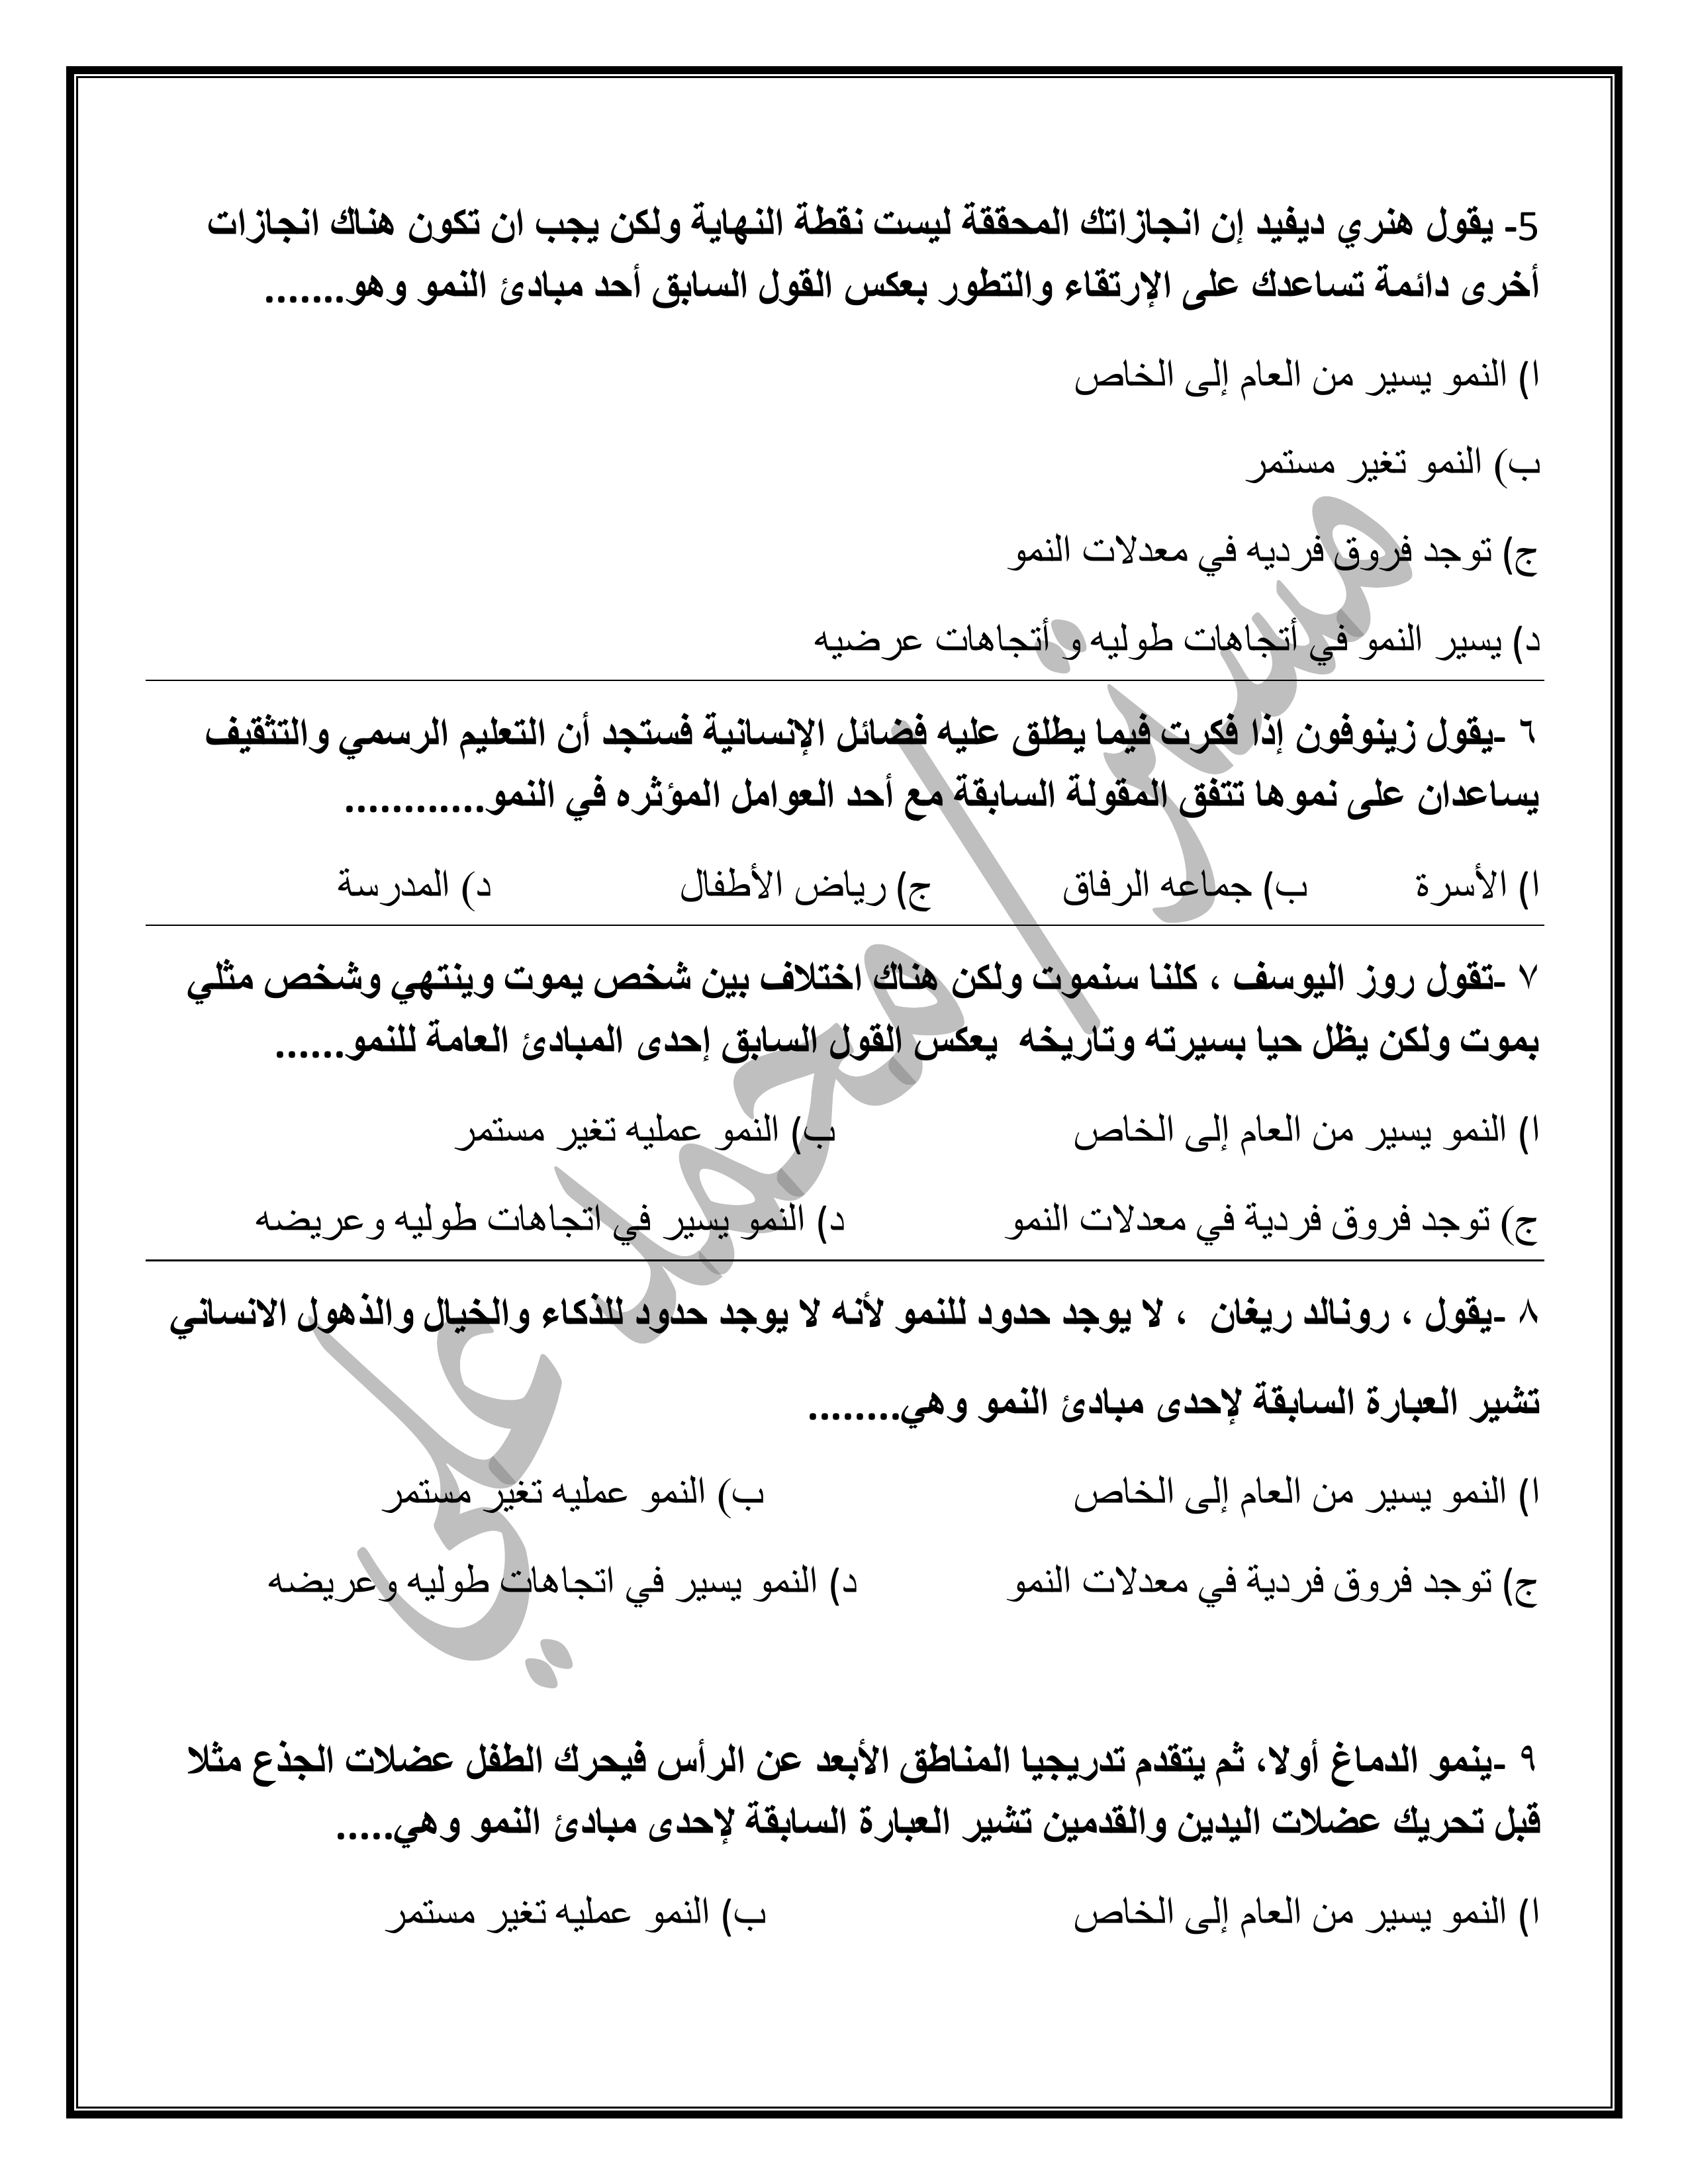 5- يقول هنري ديفيد إن انجازاتك المحققة ليست نقطة النهاية ولكن يجب ان تكون هناك انجازات
أخرى دائمة تساعدك على الإرتقاء والتطور بعكس القول السابق أحد مبادئ النمو وهو.......
ا) النمو يسير من العام إلى الخاص
ب) النمو تغير مستمر
ج) توجد فروق فرديه في معدلات النمو
د) يسير النمو في أتجاهات طوليه و أتجاهات عرضيه
٦ -يقول زينوفون إذا فكرت فيما يطلق عليه فضائل الإنسانية فستجد أن التعليم الرسمي والتثقيف
يساعدان على نموها تتفق المقولة السابقة مع أحد العوامل المؤثره في النمو............
ا) الأسرة ب) جماعه الرفاق ج) رياض الأطفال د) المدرسة
٧ -تقول روز اليوسف ، كلنا سنموت ولكن هناك اختلاف بين شخص يموت وينتهي وشخص مثلي
بموت ولكن يظل حيا بسيرته وتاريخه يعكس القول السابق إحدى المبادئ العامة للنمو......
ا) النمو يسير من العام إلى الخاص ب) النمو عمليه تغير مستمر
ج) توجد فروق فردية في معدلات النمو د) النمو يسير في اتجاهات طوليه وعريضه
٨ -يقول ، رونالد ريغان ، لا يوجد حدود للنمو لأنه لا يوجد حدود للذكاء والخيال والذهول الانساني
تشير العبارة السابقة لإحدى مبادئ النمو وهي........
ا) النمو يسير من العام إلى الخاص ب) النمو عمليه تغير مستمر
ج) توجد فروق فردية في معدلات النمو د) النمو يسير في اتجاهات طوليه وعريضه
٩ -ينمو الدماغ أولا، ثم يتقدم تدريجيا المناطق الأبعد عن الرأس فيحرك الطفل عضلات الجذع مثلا
قبل تحريك عضلات اليدين والقدمين تشير العبارة السابقة لإحدى مبادئ النمو وهي.....
ا) النمو يسير من العام إلى الخاص ب) النمو عمليه تغير مستمر
مستر/ محمد علي